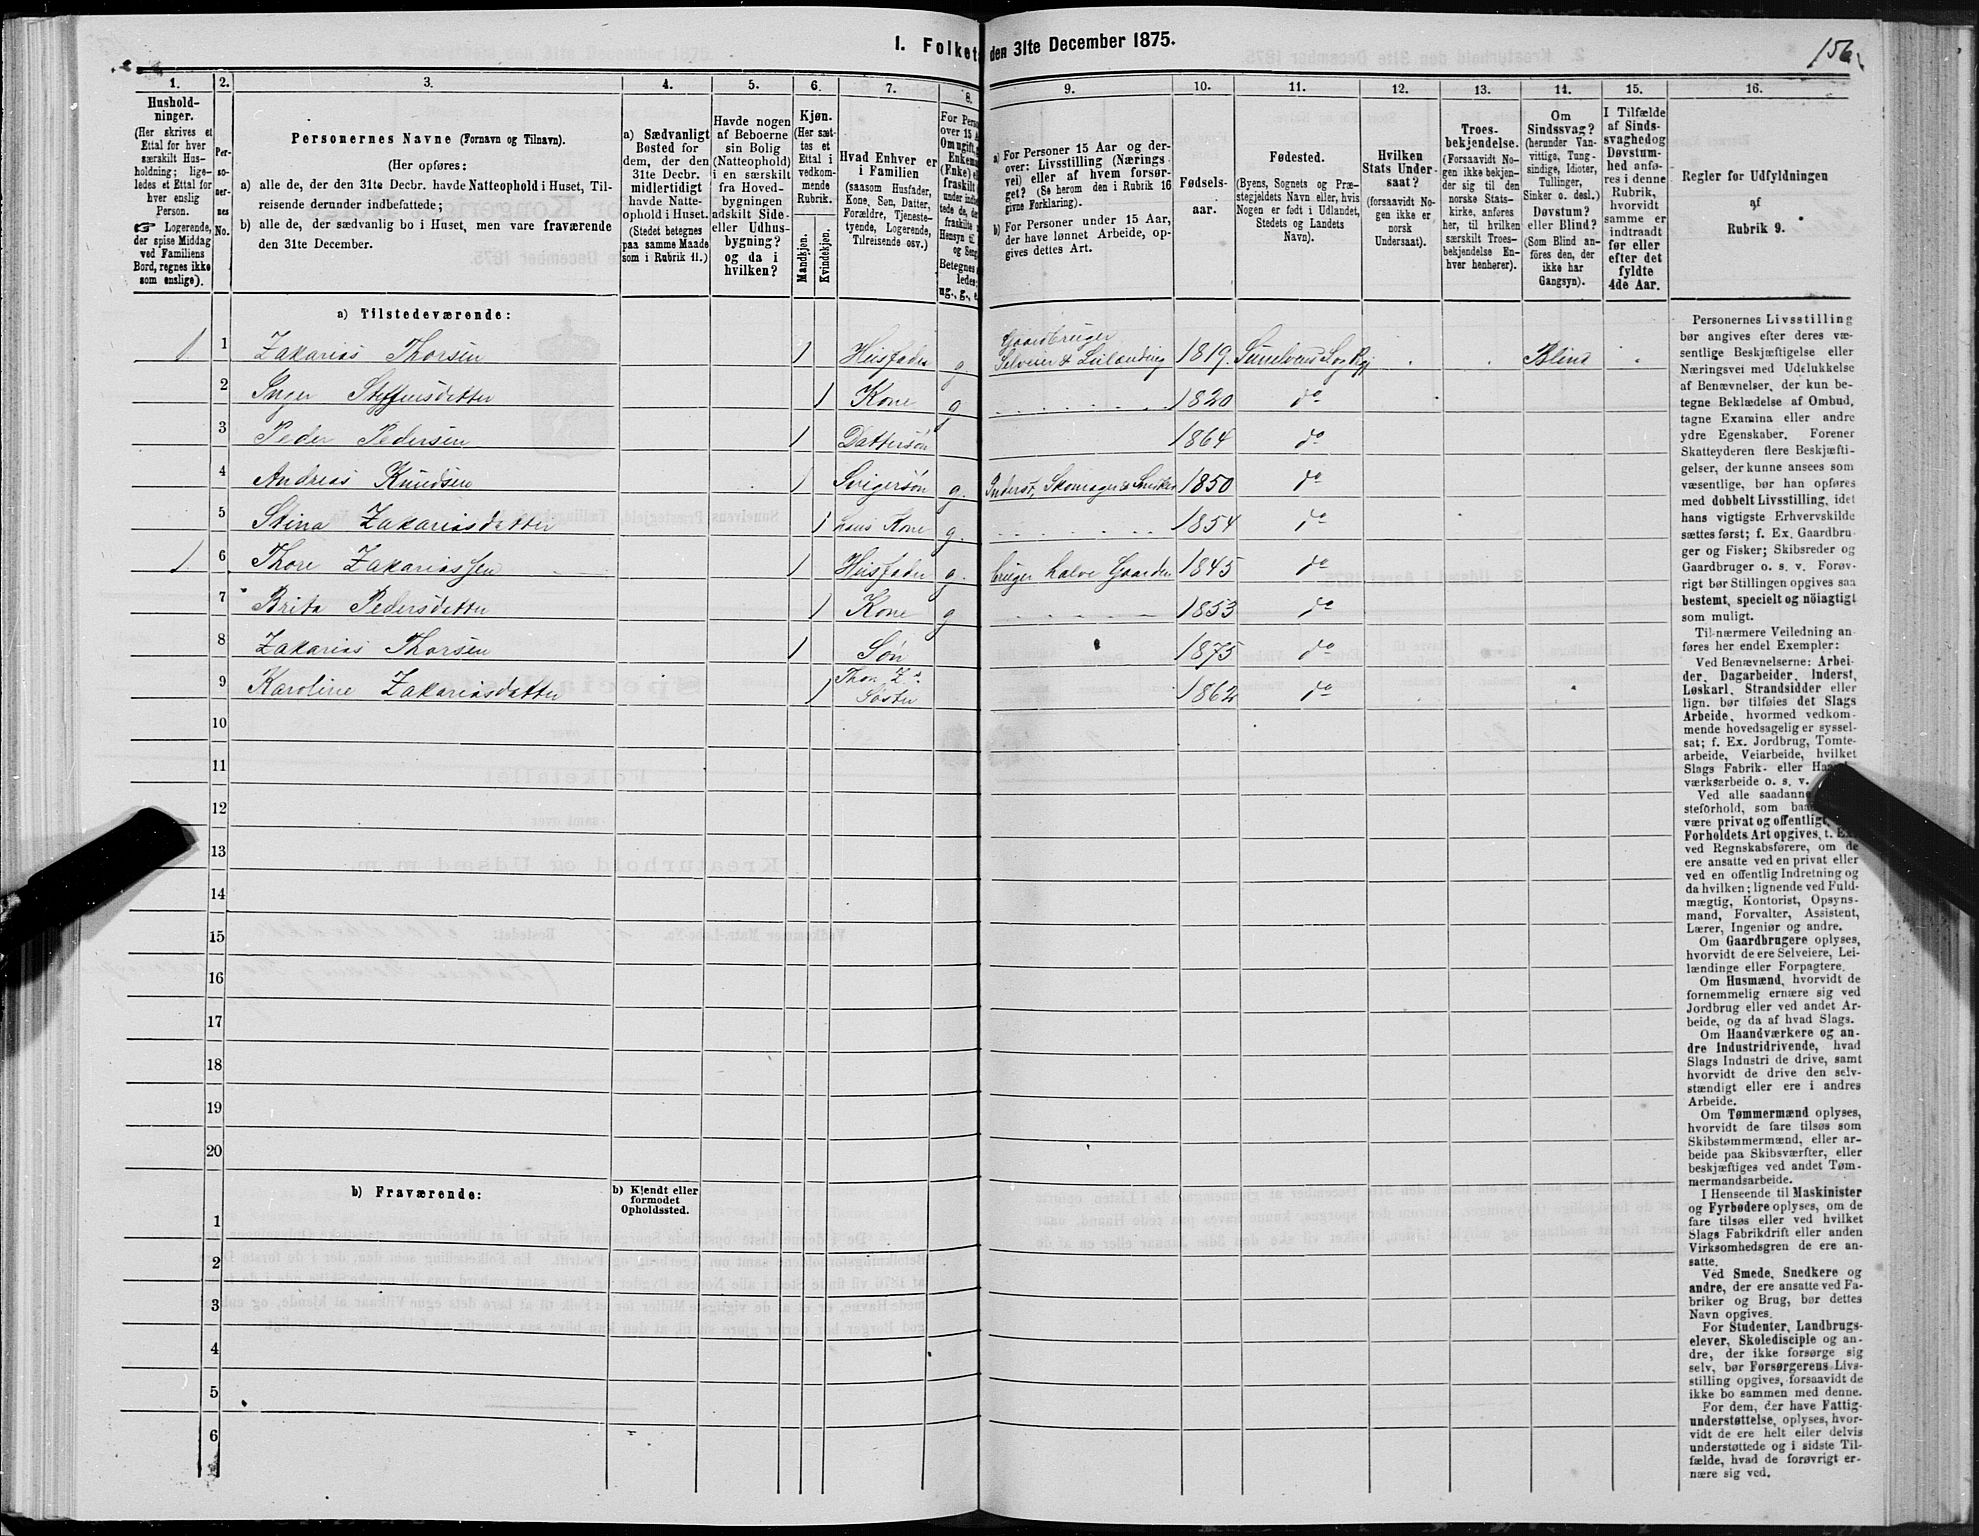 I. Folket den 31te December 1875.
156.
1.
2.
3.
4.
5.
6.
7.
8.
9.
10.
11.
12.
13.
14.
15.
16.
Hushold-
ninger.
(Her skrives et
Ettal for hver
særskilt Hus-
holdning; lige-
ledes et Ettal for
hver enslig
Person.
☞ Logerende,
der spise Middag
ved Familiens
Bord, regnes ikke
som enslige).
Per-
so-
ner-
nes
No.
Personernes Navne (Fornavn og Tilnavn).
(Her opføres:
a) alle de, der den 31te Decbr. havde Natteophold i Huset, Til-
reisende derunder indbefattede;
b) alle de, der sædvanlig bo i Huset, men vare fraværende
den 31te December.
a) Sædvanligt
Bosted for
dem, der den
31te Decbr.
midlertidigt
havde Natte-
ophold i Huset.
(Stedet betegnes
paa samme Maade
som i Rubrik 11.)
Havde nogen
af Beboerne
sin Bolig
(Natteophold)
i en særskilt
fra Hoved-
bygningen
adskilt Side-
eller Udhus-
bygning?
og da i
hvilken?
Kjøn.
(Her sæt-
tes et
Ettal i
vedkom-
mende
Rubrik.
Mandkjøn.
Kvindekjøn.
Hvad Enhver er
i Familien
(saasom Husfader,
Kone, Søn, Datter,
Forældre, Tjeneste-
tyende, Logerende,
Tilreisende osv.)
For Perso
over 15 A
Om ugift, g
Enkem
(Enke) e
fraskilt
under indbe
tede de, der
fraskilte
Hensyn til
og Seng
Betegnes
ledes:
ug., g., e.
a) For Personer 15 Aar og der-
over: Livsstilling (Nærings
vei) eller af hvem forsør-
get? (Se herom den i Rubrik 16
givne Forklaring).
b) For Personer under 15 Aar,
der have lønnet Arbeide, op-
gives dettes Art.
Fødsels-
aar.
Fødested.
(Byens, Sognets og Præ-
stegjeldets Navn eller, hvis
Nogen er født i Udlandet,
Stedets og Landets
Navn).
Hvilken
Stats Under-
saat?
(forsaavidt No-
gen ikke er
norsk
Undersaat).
Troes-
bekjendelse.
(Forsaavidt No-
gen ikke bekjen-
der sig til den
norske Stats-
kirke, anføres
her, til hvilken
særskilt Troes-
bekjendelse En-
hver henhører).
Om
Sindssvag?
(herunder Van-
vittige, Tung-
sindige, Idioter,
Tullinger,
Sinker o. desl.)
Døvstum?
eller Blind?
(Som Blind an-
føres den, der
ikke har
Gangsyn).
I Tilfælde
af Sinds-
svaghed og
Døvstum-
hed anfø-
res i denne
Rubrik,
hvorvidt
samme er
indtraadt
før eller
efter det
fyldte
4de Aar.
Regler for Udfyldningen
af
Rubrik 9.
a) Tilstedeværende:
1 1 Zakarias Thorsen 1 Husfader g. Gaardbruger
Selveier & Leilænding 1819. Blind
2 Inger Steffensdetter 1 Kone g 1820 do
3 Peder Pedersen 1 Dattersøn 1864 do
4 Andreas Knudsen 1 Svigersøn g. Inderst, Skomager & Snedker 1850 do
5 Stina Zakariasdetter 1 hans Kone g. 1854 do
1 6 Thore Zakariassen 1 Husfader g. bruger halve Gaarden 1845 do
7 Brita Pedersdetter 1 Kone g 1853 do
8 Zakarias Thorsen 1 Søn 1875 do
9 Karoline Zakariasdetter 1 Thor. Z.s
Søster 1862 do
10
11
12
13
14
15
16
17
18
19
20
b) Fraværende:
b) Kjendt eller
formodet
Opholdssted.
1
2
3
4
5
6
Personernes Livsstilling
bør angives efter deres væ-
sentlige Beskjæftigelse eller
Næringsvei med Udelukkelse
af Benævnelser, der kun be-
tegne Beklædelse af Ombud,
tagne Examina eller andre
ydre Egenskaber. Forener
Skatteyderen flere Beskjæfti-
gelser, der kunne ansees som
væsentlige, bør han opføres
med dobbelt Livsstilling, idet
hans vigtigste Erhvervskilde
sættes først; f. Ex. Gaardbru-
ger og Fisker; Skibsreder og
Gaardbruger o. s. v. Forøv-
rigt bør Stillingen opgives saa
bestemt, specielt og nöiagtigt
som muligt.
Til nærmere Veiledning an-
føres her endel Exempler:
Ved Benævnelserne: Arbei-
der, Dagarbeider, Inderst,
Løskarl, Strandsidder eller
lign. bør tilføies det Slags
Arbeide, hvormed vedkom-
mende hovedsagelig er syssel-
sat; f. Ex. Jordbrug, Tomte-
arbeide, Veiarbeide, hvilket
Slags Fabrik- eller Haand-
værksarbeide o. s. v.
Ved alle saadanne
steforhold, som baa
være privat og offentligt,
Forholdets Art opgives, t. Ex.
ved Regnskabsførere, om de
ere ansatte ved en privat eller
ved en offentlig Indretning og
da hvilken; lignende ved Fuld-
mægtig, Kontorist, Opsyns-
mand, Forvalter, Assistent,
Lærer, Ingeniør og andre.
Om Gaardbrugere oplyses,
hvorvidt de ere Selveiere, Lei-
lændinge eller Forpagtere.
Om Husmænd, hvorvidt de
fornemmelig ernære sig ved
Jordbrug eller ved andet Ar-
beide, og da af hvad Slags.
Om Haandværkere og an-
dre Industridrivende, hvad
Slags Industri de drive, samt
hvorvidt de drive den selv-
stændigt eller ere i andres
Arbeide.
Om Tømmermænd oplyses,
hvorvidt de fare tilsøs som
Skibstømmermænd, eller ar-
beide paa Skibsværfter, eller
beskjæftiges ved andet Tøm-
mermandsarbeide.
I Henseende til Maskinister
og Fyrbødere oplyses, om de
fare tilsøs eller ved hvilket
Slags Fabrikdrift eller anden
Virksomhedsgren de ere an-
satte.
Ved Smede, Snedkere og
andre, der ere ansatte ved Fa-
briker og Brug, bør dettes
Navn opgives.
For Studenter, Landbrugs-
elever, Skoledisciple og an-
dre, der ikke forsørge sig
selv, bør Forsørgerens Livs-
stilling opgives, forsaavidt de
ikke bo sammen med denne.
For dem, der have Fattig-
understøttelse, oplyses, hvor-
vidt de ere helt eller delvis
understøttede og i sidste Til-
fælde, hvad de forøvrigt er-
nære sig ved.